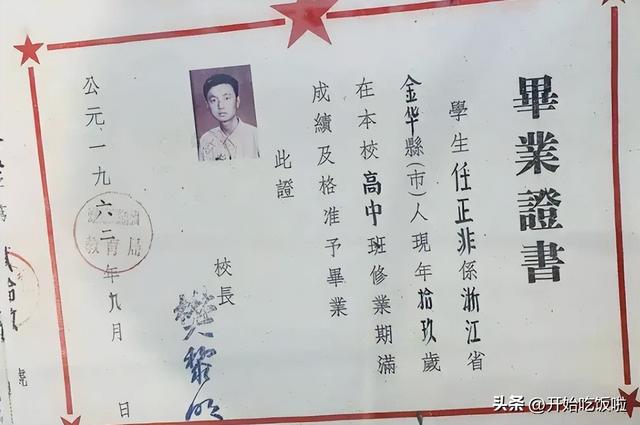 畢業證書
學生任正非係浙江省
金华縣(市)人現年拾玖歲
在本校高中班修業期滿
成績及格准予畢業
此證
校長
樊黎明
公元一九六二年九月 日
教育局
头条 @开始吃饭啦